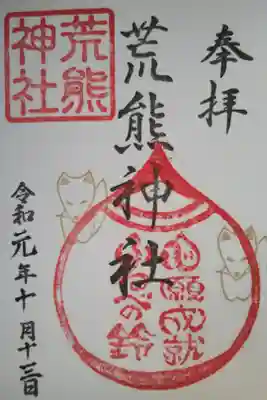 奉拝
荒熊神社
荒熊
神社
心願成就
の鈴
令和元年十月十三日